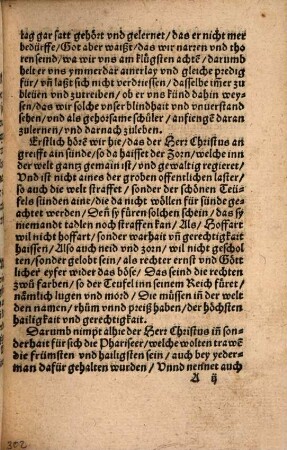 tag gar satt gehört und gelernet / das er nicht mer
bedürffe / Got aber waißt / das wir narren vnd tho
ren seind / wa wir vns am klügsten achtē / darumb
helt er vns ymmerdar ainerlay vnd gleiche predig
für / vñ laßt sich nicht verdriessen / dasselbe im̄er zu
bleüen vnd zutreiben / ob er vns kündt dahin wey=
sen / das wir solche vnser blindhait vnd vnuerstand
sehen / vnd als gehorsame schüler / anfiengē daran
zulernen / vnd darnach zuleben.
Erstlich hörē wir hie / das der Herr Christus an
greifft ain sünde / so da haisset der Zorn / welche inn
der welt gantz gemain ist / vnd gewaltig regieret /
Vnd ist nicht aines der groben offentlichen laster /
so auch die welt straffet / sonder der schönen Teü=
fels sünden aine / die da nicht wöllen für sünde ge=
achtet werden / Deñ sy füren solchen schein / das sy
niemandt tadlen noch straffen kan / Als / Hoffart
wil nicht hoffart / sonder warhait vñ gerechtigkait
haissen / Also auch neid vnd zorn / wil nicht geschol
ten / sonder gelobt sein / als rechter ernst vnd Gött
licher eyfer wider das böse / Das seind die rechten
zwū farben / so der Teufel inn seinem Reich füret /
nämlich lugen vnd mord / Die müssen in der welt
den namen / rhům vnnd preiß haben / der höchsten
hailigkait vnd gerechtigkait.
Darumb nimpt alhie der Herr Christus iñ son=
derhait für sich die Phariseer / welche wolten trawē
die frümsten vnd hailigsten sein / auch bey yeder=
man dafür gehalten wurden / Vnnd nennet auch
A ij
302